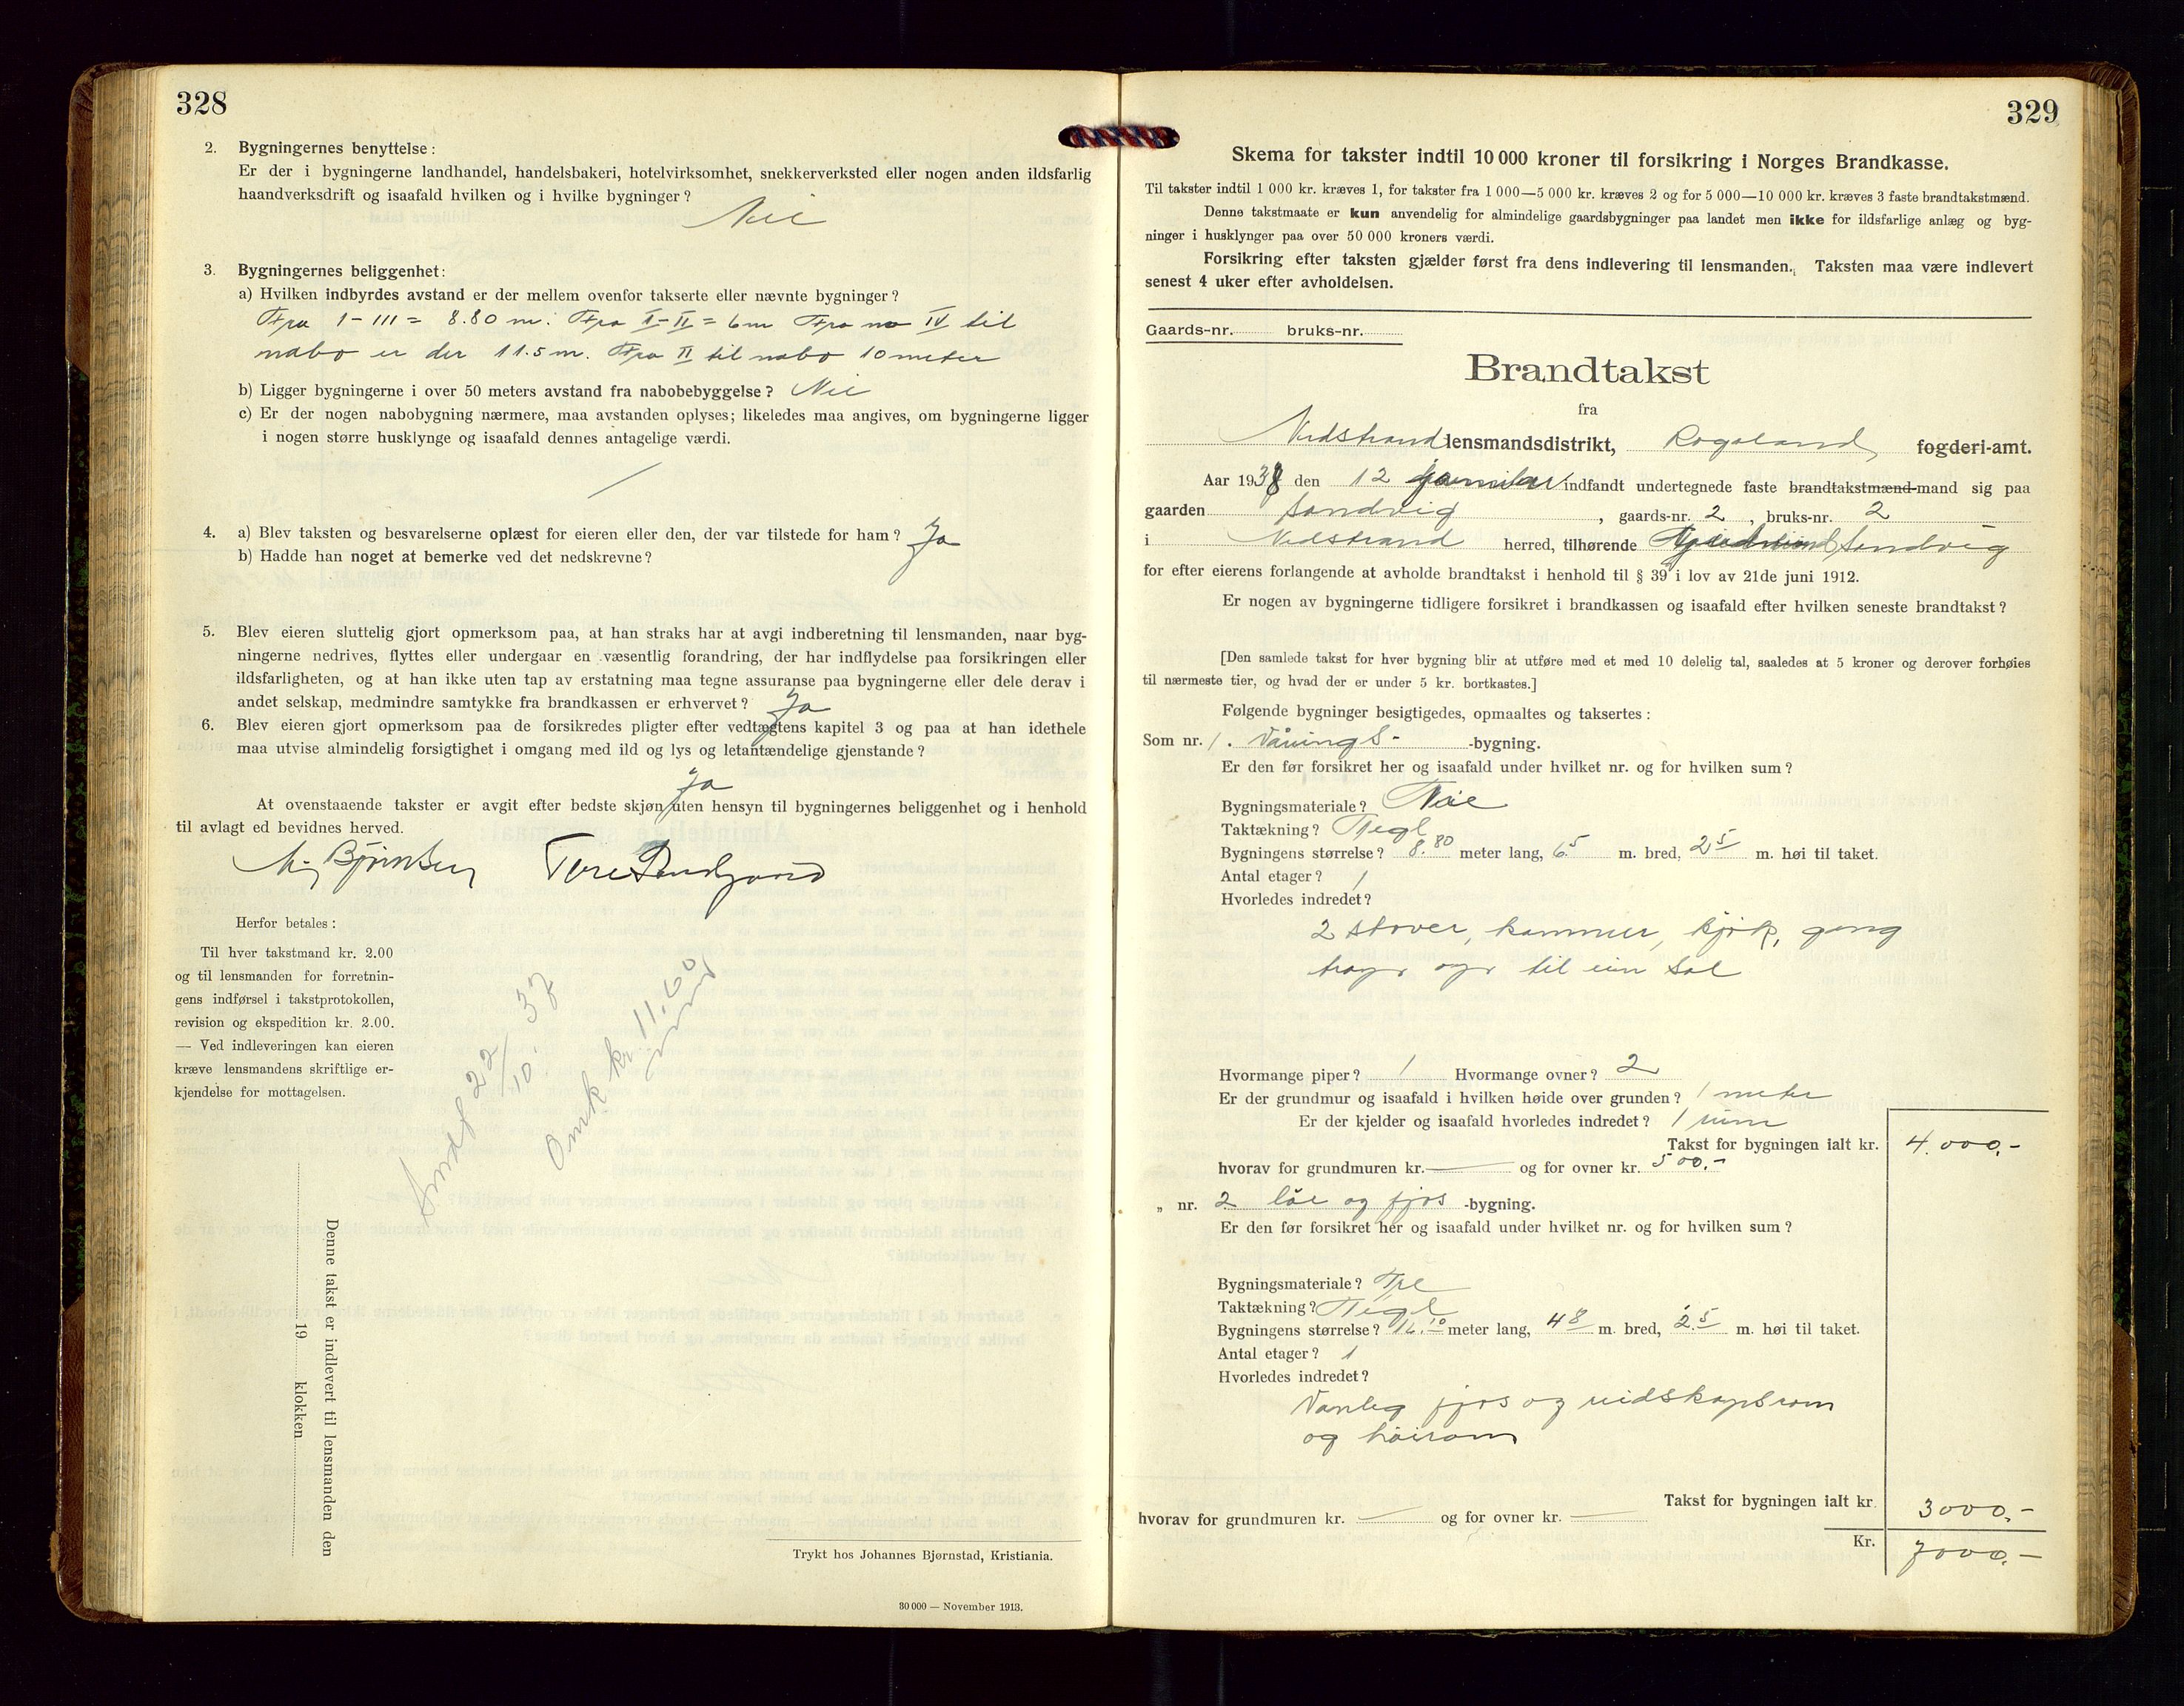 328
2. Bygningernes benyttelse:
Er der i bygningerne landhandel, handelsbakeri, hotelvirksomhet, snekkerverksted eller nogen anden ildsfarlig
haandverksdrift og isaafald hvilken og i hvilke bygninger?
Nei
3. Bygningernes beliggenhet:
a) Hvilken indbyrdes avstand er der mellem ovenfor takserte eller nævnte bygninger?
Fra 1-III = 8.80 m. Fra I-II = 6 m Fra no IV til
nabo er der 11.5 m. Fra II til nabo 10 meter
b) Ligger bygningerne i over 50 meters avstand fra nabobebyggelse? Nei
c) Er der nogen nabobygning nærmere, maa avstanden oplyses; likeledes maa angives, om bygningerne ligger
i nogen større husklynge og isaafald dennes antagelige værdi.
4. a) Blev taksten og besvarelserne oplæst for eieren eller den, der var tilstede for ham? Ja
b) Hadde han noget at bemerke ved det nedskrevne?
5. Blev eieren sluttelig gjort opmerksom paa, at han straks har at avgi indberetning til lensmanden, naar byg-
ningerne nedrives, flyttes eller undergaar en væsentlig forandring, der har indflydelse paa forsikringen eller
ildsfarligheten, og at han ikke uten tap av erstatning maa tegne assuranse paa bygningerne eller dele derav i
andet selskap, medmindre samtykke fra brandkassen er erhvervet? Ja
6. Blev eieren gjort opmerksom paa de forsikredes pligter efter vedtægtens kapitel 3 og paa at han idethele
maa utvise almindelig forsigtighet i omgang med ild og lys og letantændelige gjenstande?
Ja
At ovenstaaende takster er avgit efter bedste skjøn uten hensyn til bygningernes beliggenhet og i henhold
til avlagt ed bevidnes herved.
Herfor betales:
Til hver takstmand kr. 2.00
og til lensmanden for forretnin-
gens indførsel i takstprotokollen,
revision og ekspedition kr. 2.00.
— Ved indleveringen kan eieren
kræve lensmandens skriftlige er-
kjendelse for mottagelsen.
Indf 22/10. 37
Omk kr. 11.60
Denne takst er indlevert til lensmanden den
19 klokken
Trykt hos Johannes Bjørnstad, Kristiania.
30 000 — November 1913.
329
Skema for takster indtil 10 000 kroner til forsikring i Norges Brandkasse.
Til takster indtil 1 000 kr. kræves 1, for takster fra 1 000—5 000 kr. kræves 2 og for 5 000—10 000 kr. kræves 3 faste brandtakstmænd.
Denne takstmaate er kun anvendelig for almindelige gaardsbygninger paa landet men ikke for ildsfarlige anlæg og byg-
ninger i husklynger paa over 50 000 kroners værdi.
Forsikring efter taksten gjælder først fra dens indlevering til lensmanden. Taksten maa være indlevert
senest 4 uker efter avholdelsen.
Gaards-nr. bruks-nr.
Brandtakst
fra
Nedstrand lensmandsdistrikt, Rogaland fogderi-amt.
Aar 1938 den 12 januar indfandt undertegnede faste brandtakstmænd-mand sig paa
gaarden Sandvig , gaards-nr. 2 , bruks-nr. 2
i Nedstrand herred, tilhørende Sandvig
for efter eierens forlangende at avholde brandtakst i henhold til § 39 i lov av 21de juni 1912.
Er nogen av bygningerne tidligere forsikret i brandkassen og isaafald efter hvilken seneste brandtakst?
[Den samlede takst for hver bygning blir at utføre med et med 10 delelig tal, saaledes at 5 kroner og derover forhøies
til nærmeste tier, og hvad der er under 5 kr. bortkastes.]
Følgende bygninger besigtigedes, opmaaltes og taksertes:
Som nr. 1. Vånings- -bygning.
Er den før forsikret her og isaafald under hvilket nr. og for hvilken sum?
Bygningsmateriale?
Taktækning? Tegl
Bygningens størrelse? 8.80 meter lang, 6.5 m. bred, 2.5 m. høi til taket.
Antal etager? 1
Hvorledes indredet?
2 stover, kammer, kjøk, gang
trapp opp til ein sal
Hvormange piper? 1 Hvormange ovner? 2
Er der grundmur og isaafald i hvilken høide over grunden? 1 meter
Er der kjelder og isaafald hvorledes indredet? 1 rum
Takst for bygningen ialt kr. 4.000.-
hvorav for grundmuren kr. — og for ovner kr. 500.-
„ nr. 2 löe og fjos -bygning.
Er den før forsikret her og isaafald under hvilket nr. og for hvilken sum?
Bygningsmateriale? Tre
Taktækning? Tegl
Bygningens størrelse? 16.10 meter lang, 48 m. bred, 2.5 m. høi til taket.
Antal etager? 1
Hvorledes indredet?
Vanleg fjos og reidskapsrom
og höirom
Takst for bygningen ialt kr. 3000.-
hvorav for grundmuren kr. — og for ovner kr. —
Kr. 7000.-